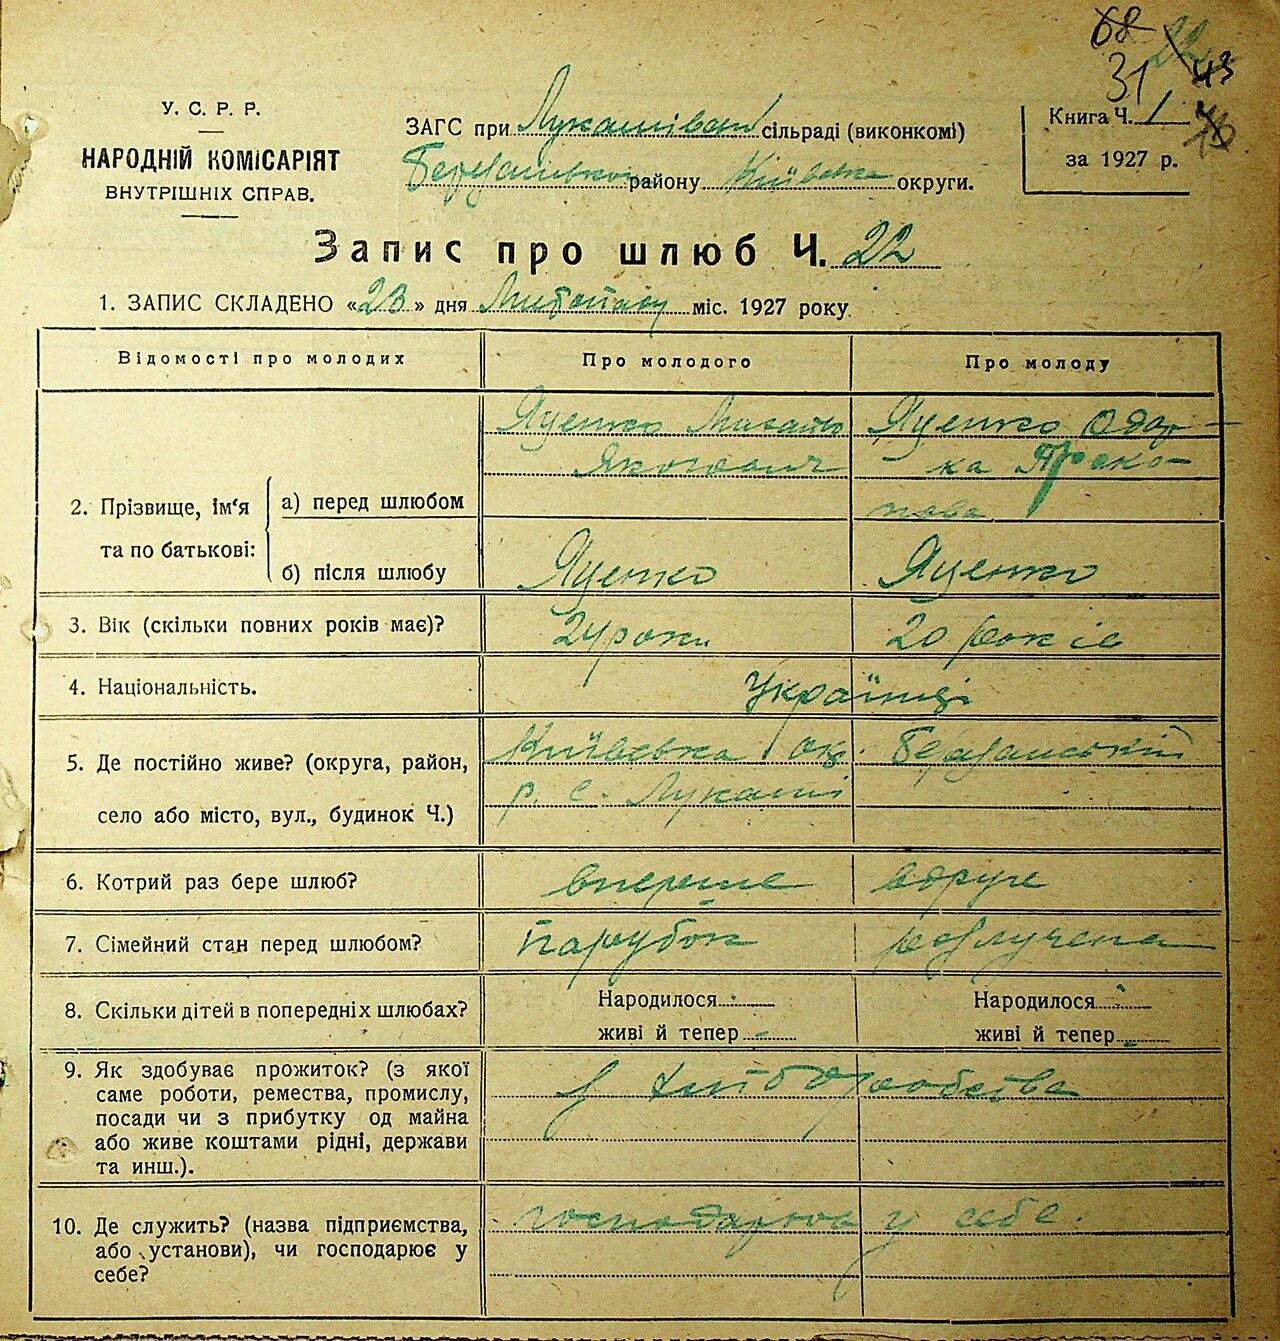 68 22
31 43
У. С. Р. Р.
НАРОДНІЙ КОМІСАРІЯТ
ВНУТРІШНІХ СПРАВ.
ЗАГС при Лукашівській сільраді (виконкомі)
Березанського району Київська округи.
Книга Ч. 1
за 1927 р.
Запис про шлюб Ч. 22
1. ЗАПИС СКЛАДЕНО «23» дня Листопаду міс. 1927 року
Відомості про молодих Про молодого Про молоду
2. Прізвище, ім'я та по батькові:
а) перед шлюбом
Яценко Михайло
Якович
Яценко Одар-
ка Проко-
пова
б) після шлюбу Яценко Яценко
3. Вік (скільки повних років має)? 24 роки 20 років
4. Національність. Українці
5. Де постійно живе? (округа, район,
село або місто, вул., будинок Ч.)
Київська ок. Березанський
р. с. Лукаші
6. Котрий раз бере шлюб? вперше вдруге
7. Сімейний стан перед шлюбом? парубок розлучена
8. Скільки дітей в попередніх шлюбах? Народилося - Народилося -
живі й тепер - живі й тепер -
9. Як здобуває прожиток? (з якої
саме роботи, ремества, промислу,
посади чи з прибутку од майна
або живе коштами рідні, держави
та инш.).
з хліборобства
10. Де служить? (назва підприємства,
або установи), чи господарює у
себе?
господарюю у себе.